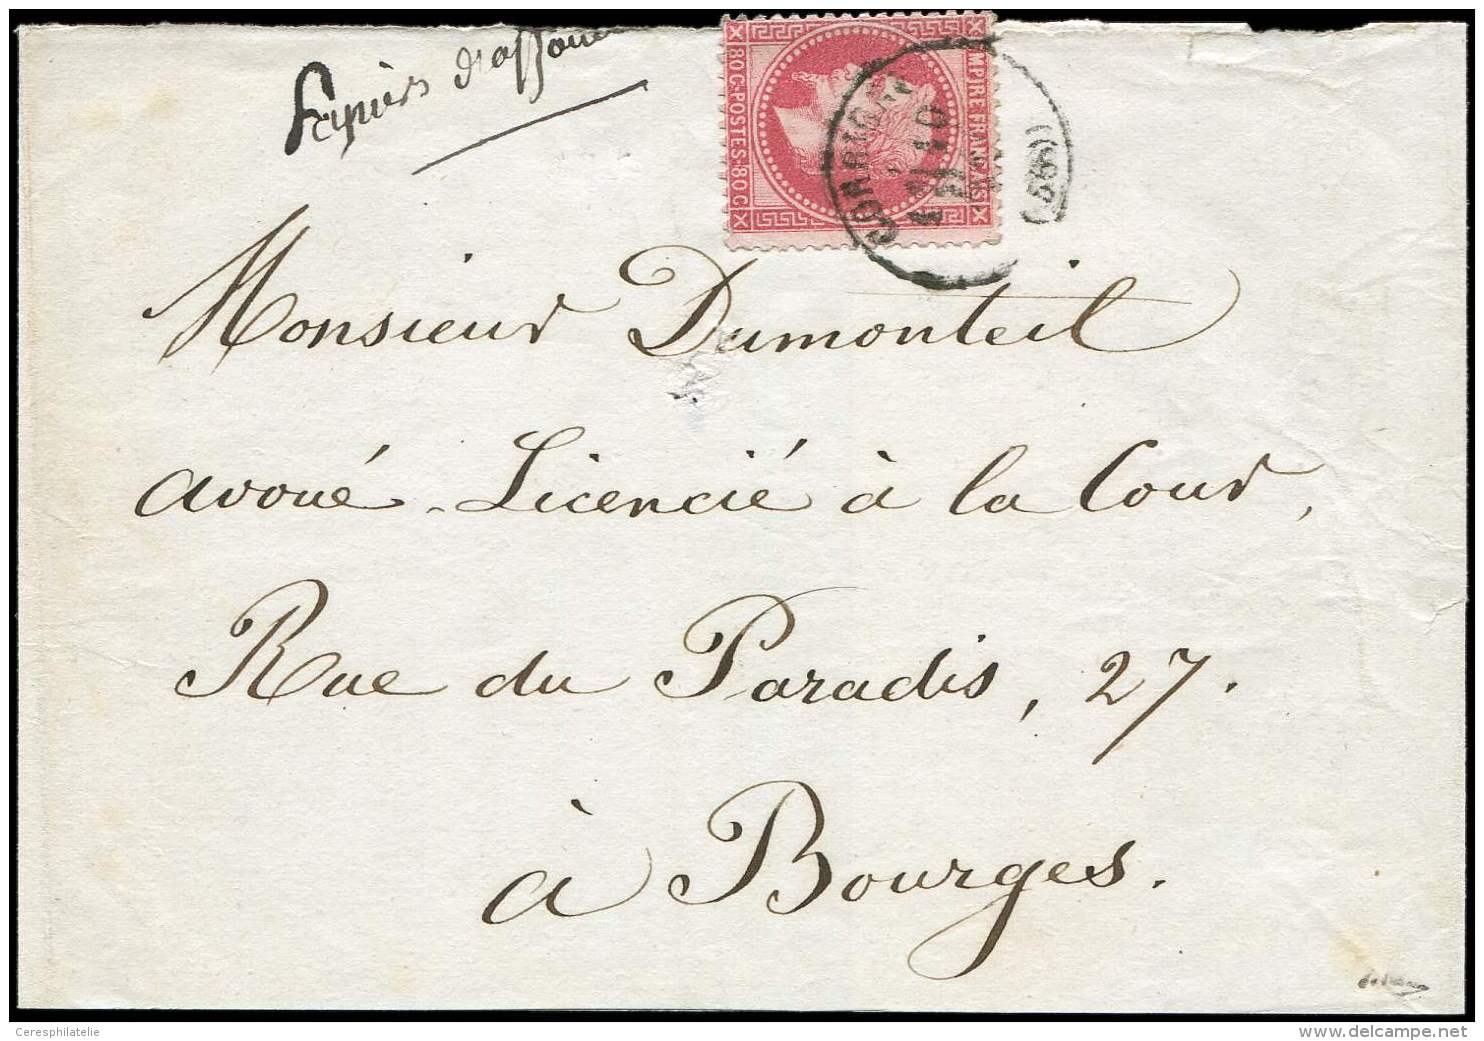 Papiers d'affaires
80 C·POSTES·80 C
EMPIRE FRANÇAIS
CORBIGNY
(56)
Monsieur Dumonteil
avoué - Licencié à la Cour,
Rue du Paradis, 27.
à Bourges.
Ceresphilatelie
www.delcampe.net